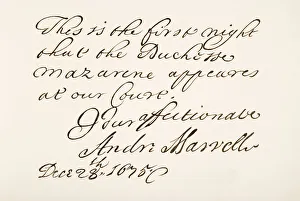 This is the first night
that the Duchesse
Mazarene appeares
at our Court.
Your affectionate
Andr: Marvell.
Decr 28th. 1675